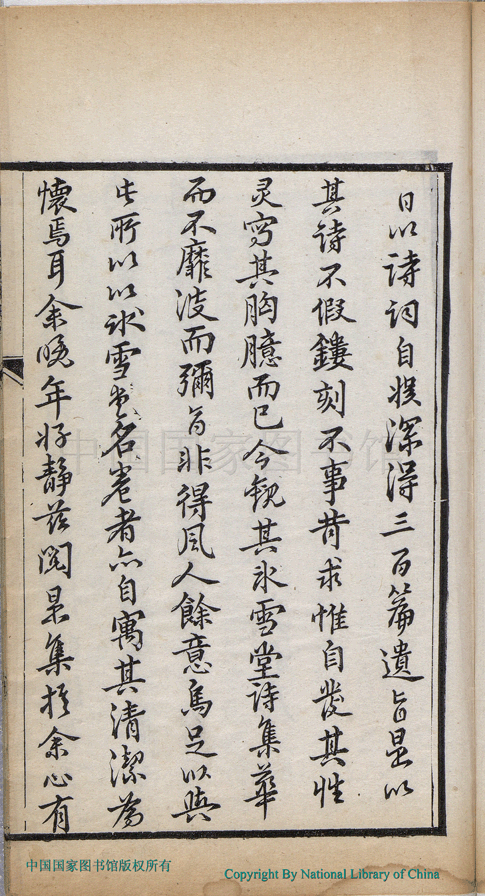 日以詩词自娱深得三百篇遺旨是以
其詩不假鏤刻不事苛求惟自發其性
灵寫其胸臆而已今觀其氷雪堂詩集華
而不靡淡而彌旨非得风人餘意烏足以與
此所以以氷雪堂名卷者亦自寓其清潔為
懷焉耳余晚年好静兹閱是集於余心有
中国国家图书馆
中国国家图书馆版权所有
Copyright By National Library of China